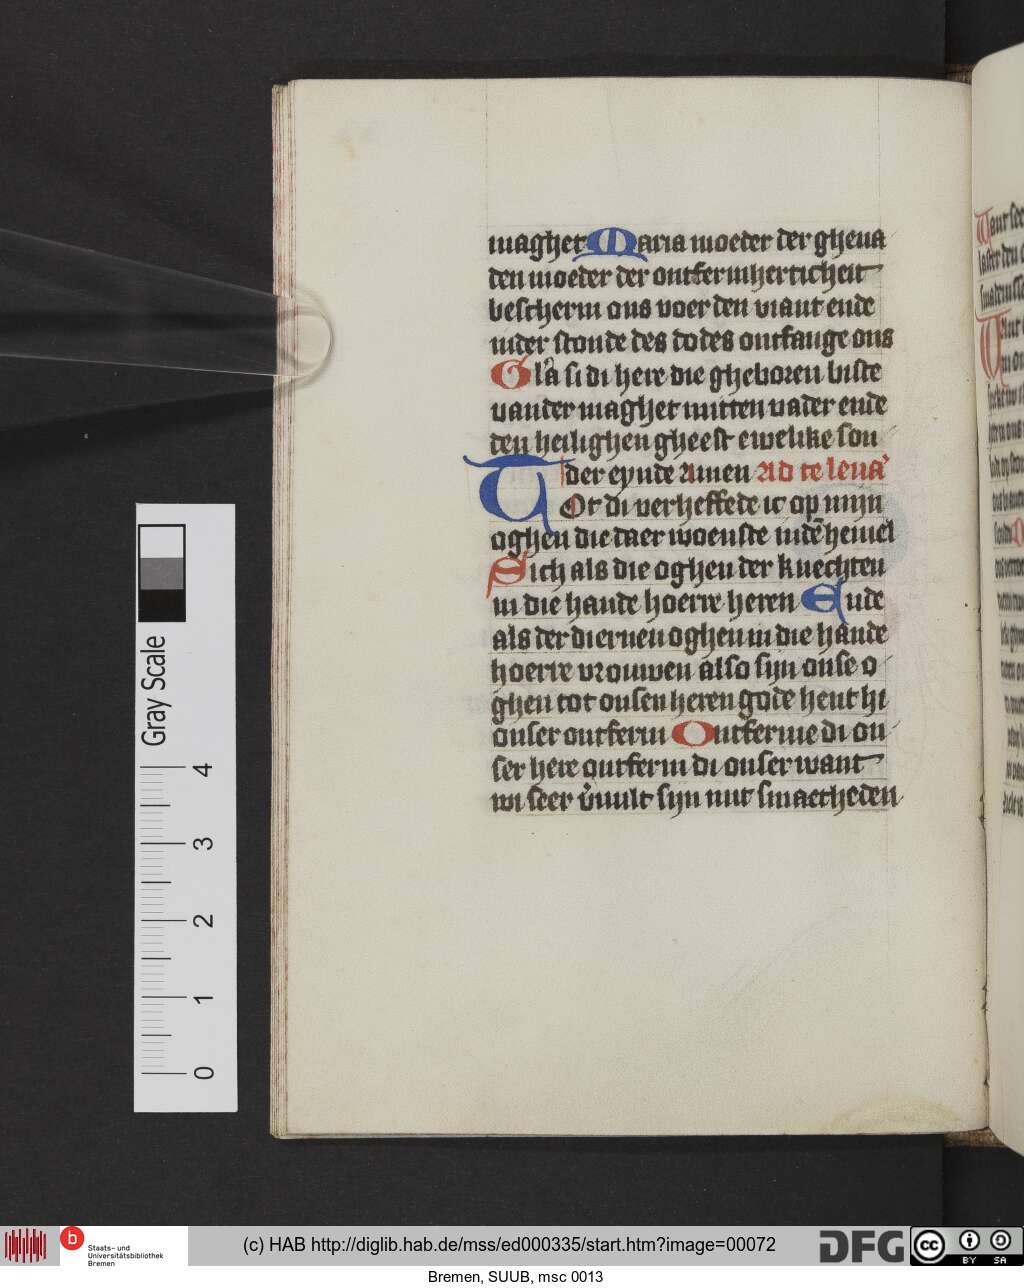 maghet Maria moeder der ghena
den moeder der ontfermherticheit
bescherm ons voer den viant ende
inder stonde des dodes ontfange ons
Gl'a si di here die gheboren biste
vander maghet mitten vader ende
den heilighen gheest ewelike son
der eynde Amen Ad te leua'
Tot di verheffede ic op mijn
oghen die daer woenste indē hemel
Sich als die oghen der knechten
in die hande hoerre heren Ende
als der diernen oghen in die hande
hoerre vrouwen also sijn onse o
ghen tot onsen heren gode hent hi
onser ontferm Ontferme di on
ser here ontferm di onser want
wi seer v'vult sijn mit smaetheden
Gray Scale
4
3
2
1
0
b
Staats- und
Universitätsbibliothek
Bremen
(c) HAB http://diglib.hab.de/mss/ed000335/start.htm?image=00072
DFG
cc
BY SA
Bremen, SUUB, msc 0013